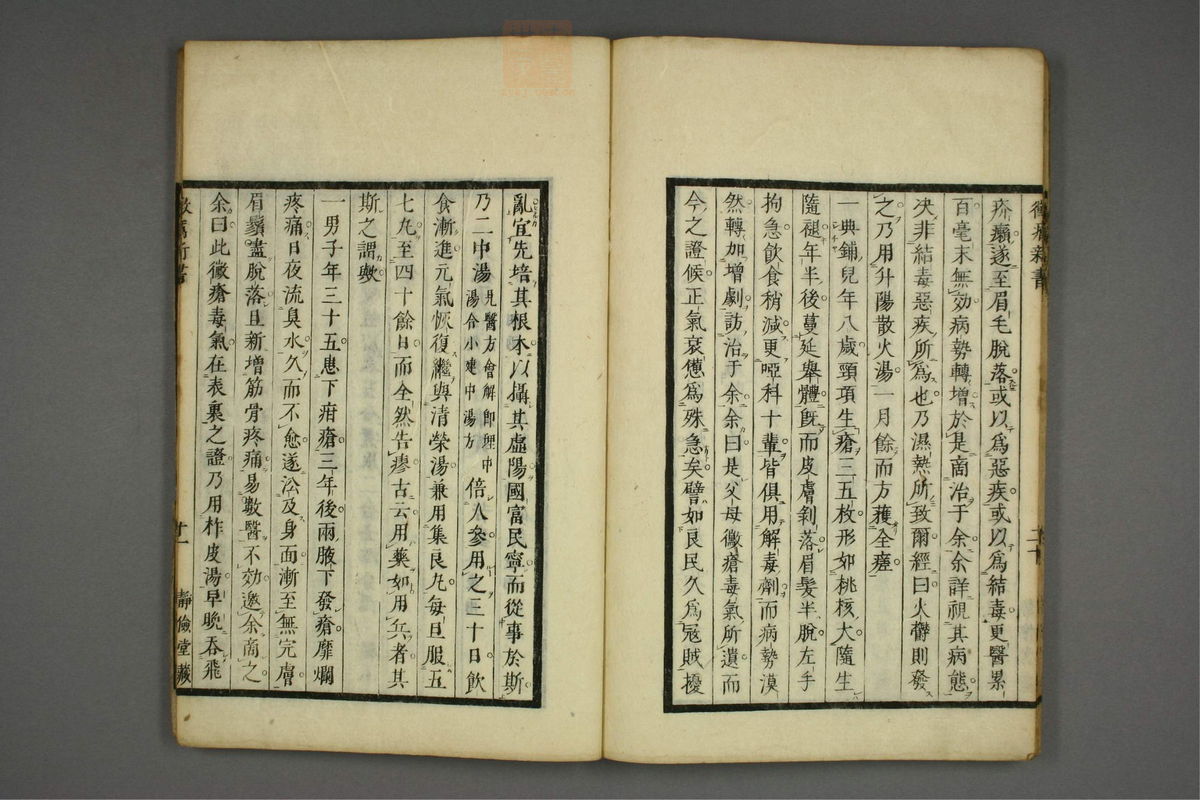 疥癩遂至眉毛脫落或以爲惡疾或以爲結毒更醫累
百毫末無効病勢轉增於是商治于余余詳視其病態
决非結毒惡疾所爲也乃濕熱所致爾經曰火鬱則發
之乃用升陽散火湯一月餘而方獲全瘥
一典鋪兒年八歲頸項生瘡三五枚形如桃核大隨生
隨褪年半後蔓延舉體既而皮膚剝落眉髮半脫左手
拘急飲食稍減更啞科十輩皆俱用解毒劑而病勢漠
然轉加增劇訪治于余余曰是父母黴瘡毒氣所遺而
今之證候正氣衰憊爲殊急矣譬如良民久爲冦賊擾
亂宜先培其根本以攝其虛陽國富民寧而從事於斯
乃二中湯見醫方會解即理中湯合小建中湯方倍人參用之三十日飲
食漸進元氣恢復繼與清榮湯兼用集良丸每旦服五
七丸至四十餘日而全然告瘳古云用藥如用兵者其
斯之謂歟
一男子年三十五患下疳瘡三年後兩腋下發瘡靡爛
疼痛日夜流臭水久而不愈遂㳂及身面漸至無完膚
眉鬚盡脫落且新增筋骨疼痛易數醫不効邀余商之
余曰此黴瘡毒氣在表裏之證乃用柞皮湯早晚吞飛
十一
靜儉堂藏